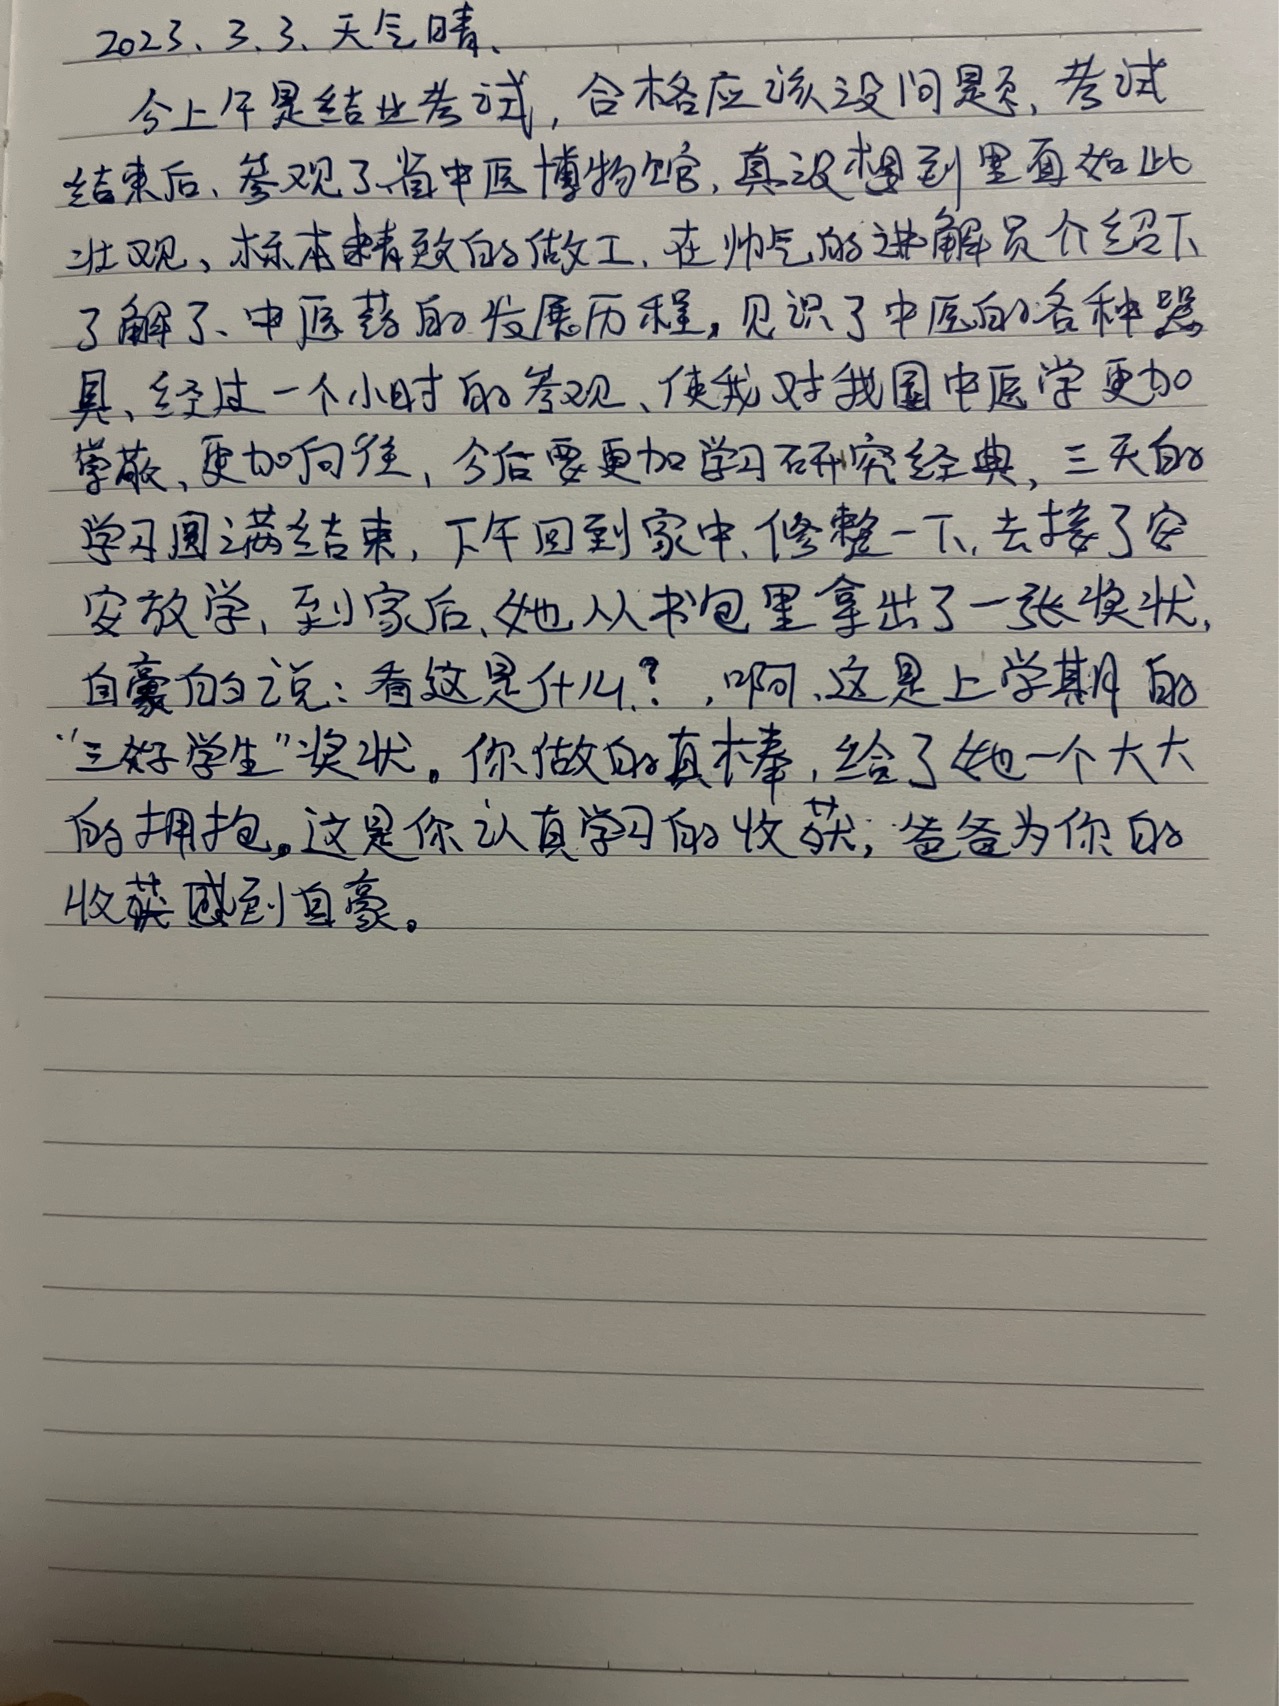 2023、3、3、天气晴、
今上午是结业考试，合格应该没问题、考试
结束后、参观了省中医博物馆，真没想到里面如此
壮观、标本精致的做工、在帅气的讲解员介绍下
了解了、中医药的发展历程，见识了中医的各种器
具、经过一个小时的参观、使我对我国中医学更加
崇敬、更加向往，今后要更加学习研究经典、三天的
学习圆满结束，下午回到家中、修整一下、去接了安
安放学、到家后、她从书包里拿出了一张奖状，
自豪的说：看这是什么？，啊、这是上学期的
“三好学生”奖状。你做的真棒，给了她一个大大
的拥抱。这是你认真学习的收获，爸爸为你的
收获感到自豪。